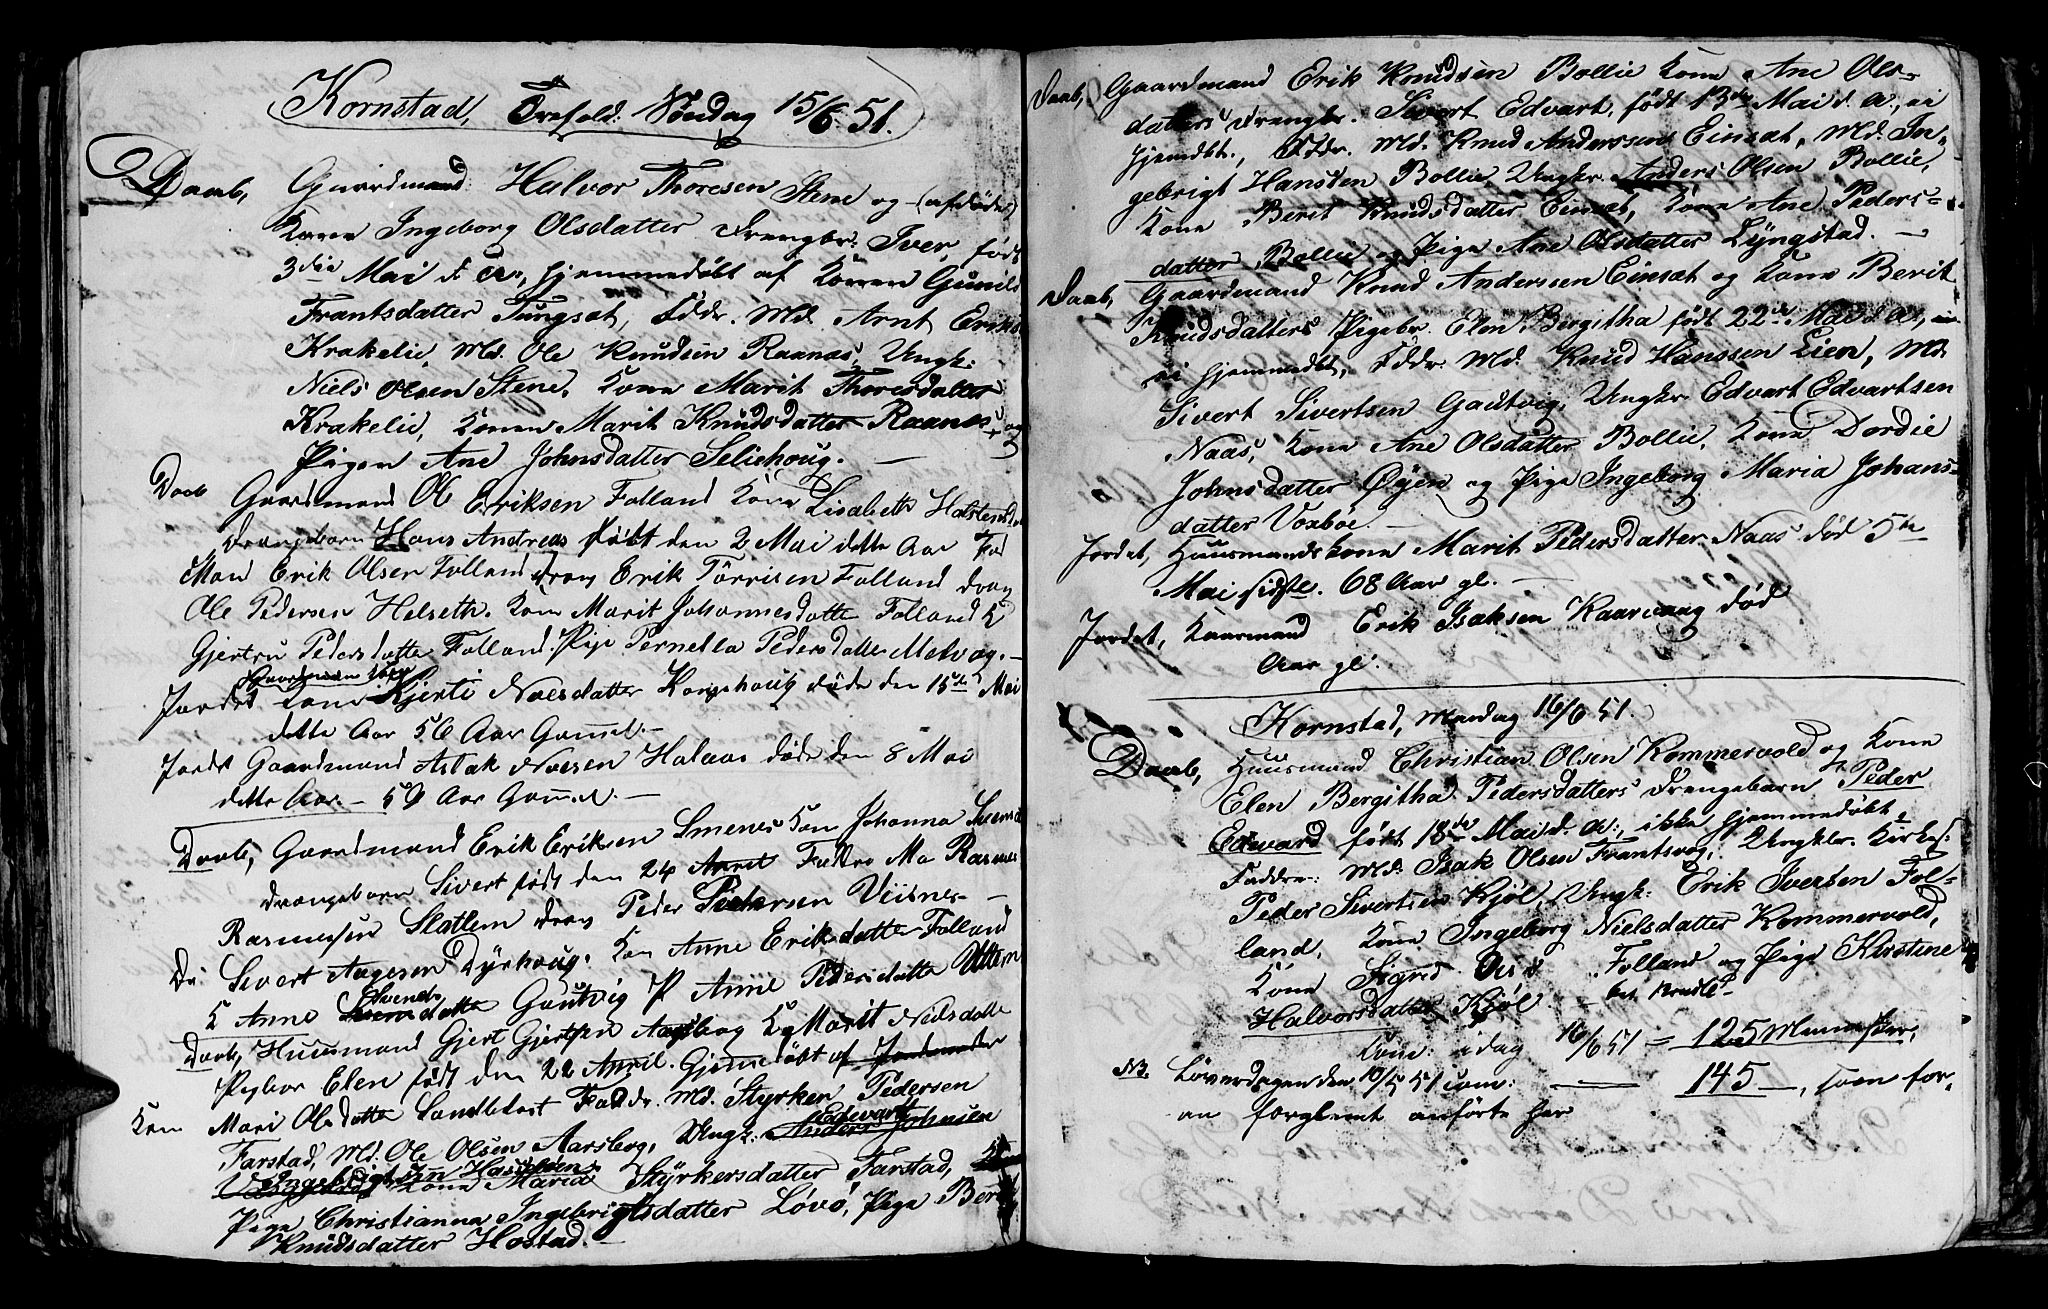 Kornstad, Trefold. Søndag 15/6 51.
Daab, Gaardmand Halvor Thoresen Stene og (afdøde)
Kone Ingeborg Olsdatter Drengbr. Iver, født
3die Mai d. A., hjemmedøbt af Konen Gunild
Frantsdatter Tungsat, Fddr. Md. Arnt Eriks
Krakelie, Md. Ole Knudsen Raanæs, Ungk.
Niels Olsen Stene, Kone Marit Thoresdatter
Krakelie, Konen Marit Knudsdatter Raanæs og
Pigen Ane Johnsdatter Seliehoug. —
Daab Gaardmand Ol Eriksen Folland Kone Lisabeth
Drengebarn Hans Andreas født den 2 Mai dette Aar Fad
Man Erik Olsen Folland Dreng Erik Tørrisen Folland Dreng
Ole Pedersen Helseth. Kone Marit Johannesdatte Folland K
Gjertru Pedersdatte Folland. Pige Pernella Pedersdatte Melvog. —
Gaardmand
Jordet Kone Gjerti Noesdatter Korgehoug døde den 15de Mai
dette Aar 56 Aar Gammel. —
Jordet Gaardmand Aslak Noesen Halaas døde den 8 Mai
dette Aar. — 59 Aar Gammel. —
Daab, Gaardmand Erik Eriksen Smenes Kone Johanna
Drengebarn Sivert født den 24 April Faddre Ma Rasmus
Rasmussen Slatlem Dreng Peder Pedersen Viisnes —
Di Sivert Aagesen Dyrhoug. Kon Anne Eriksdatte Folland
Svends
K Anne datte Gautvig P Anne Pedersdatte
Daab, Huusmand Gjert Gjertsen Aarsbog K Marit Nielsdatte
Pigbar Elen født den 22 April. Gjemmedøbt af Jordemoder
Kon Mari Olsdatte Sandblost Faddr. Md. Styrker Pedersen
Farstad, Md. Ole Olsen Aarsbog, Ungk. Anders Johnsen
Edevart
Ingebrigtsen Kone Maria Styrkersdatter Farstad,
Pige Christianna Ingebrigtsdatter Løvø, Pige Ber
Knudsdatter Hostad. —
Daab, Gaardmand Erik Knudsen Bollie Kone Ane Ols-
datters Drengbr. Sivert Edvart, født 13de Mai d. A., ei
hjemdbt., Fddr. Md. Knud Anderssen Einsæt, Md. In-
gebrigt Hanssen Bollie, Ungkr. Anders Olsen Bollie,
Kone Berit Knudsdatter Einsæt, Kone Ane Peders-
datter Bollie og Pige Ane Olsdatter Lyngstad. —
Daab, Gaardmand Knud Anderssen Einsæt og Kone Berit
Knudsdatters Pigebr. Elen Bergitha født 22de Mai d. A.,
ei hjemmedbt, Fddr. Md. Knud Hanssen Lien, Md.
Sivert Sivertsen Gautvig, Ungkr. Edvart Edvartsen
Naas, Kone Ane Olsdatter Bollie, Kone Dordie
Johnsdatter Øyen og Pige Ingeborg Maria Johans-
datter Voxbøe. —
Jordet, Huusmandskone Marit Pedersdatter Naas død 5te
Mai sidstl. 68 Aar gl. —
Jordet, Kaarmand Erik Isaksen Kaarvaag død
Aar gl.
Kornstad, Mandag 16/6 51.
Daab, Huusmand Christian Olsen Kommervold og Kone
Elen Bergitha Pedersdatters Drengebarn Peder
Edvard født 18de Mai d. A., ikke hjemmedøbt.
Faddre: Md. Isak Olsen Frantsvog, Ungklr. Kirkes.
Peder Sivertsen Kjøl, Ungk. Erik Ivertsen Fol-
land, Kone Ingeborg Nielsdatter Kommervold,
Kone Sigrid Folland og Pige Kirstine
Halvorsdatter Kjøl —
Com: idag 16/6 51 = 125 Mennesker,
NB. Løverdagen den 10/5 51 com: — 145 —, som for-
an forglemt anførte her